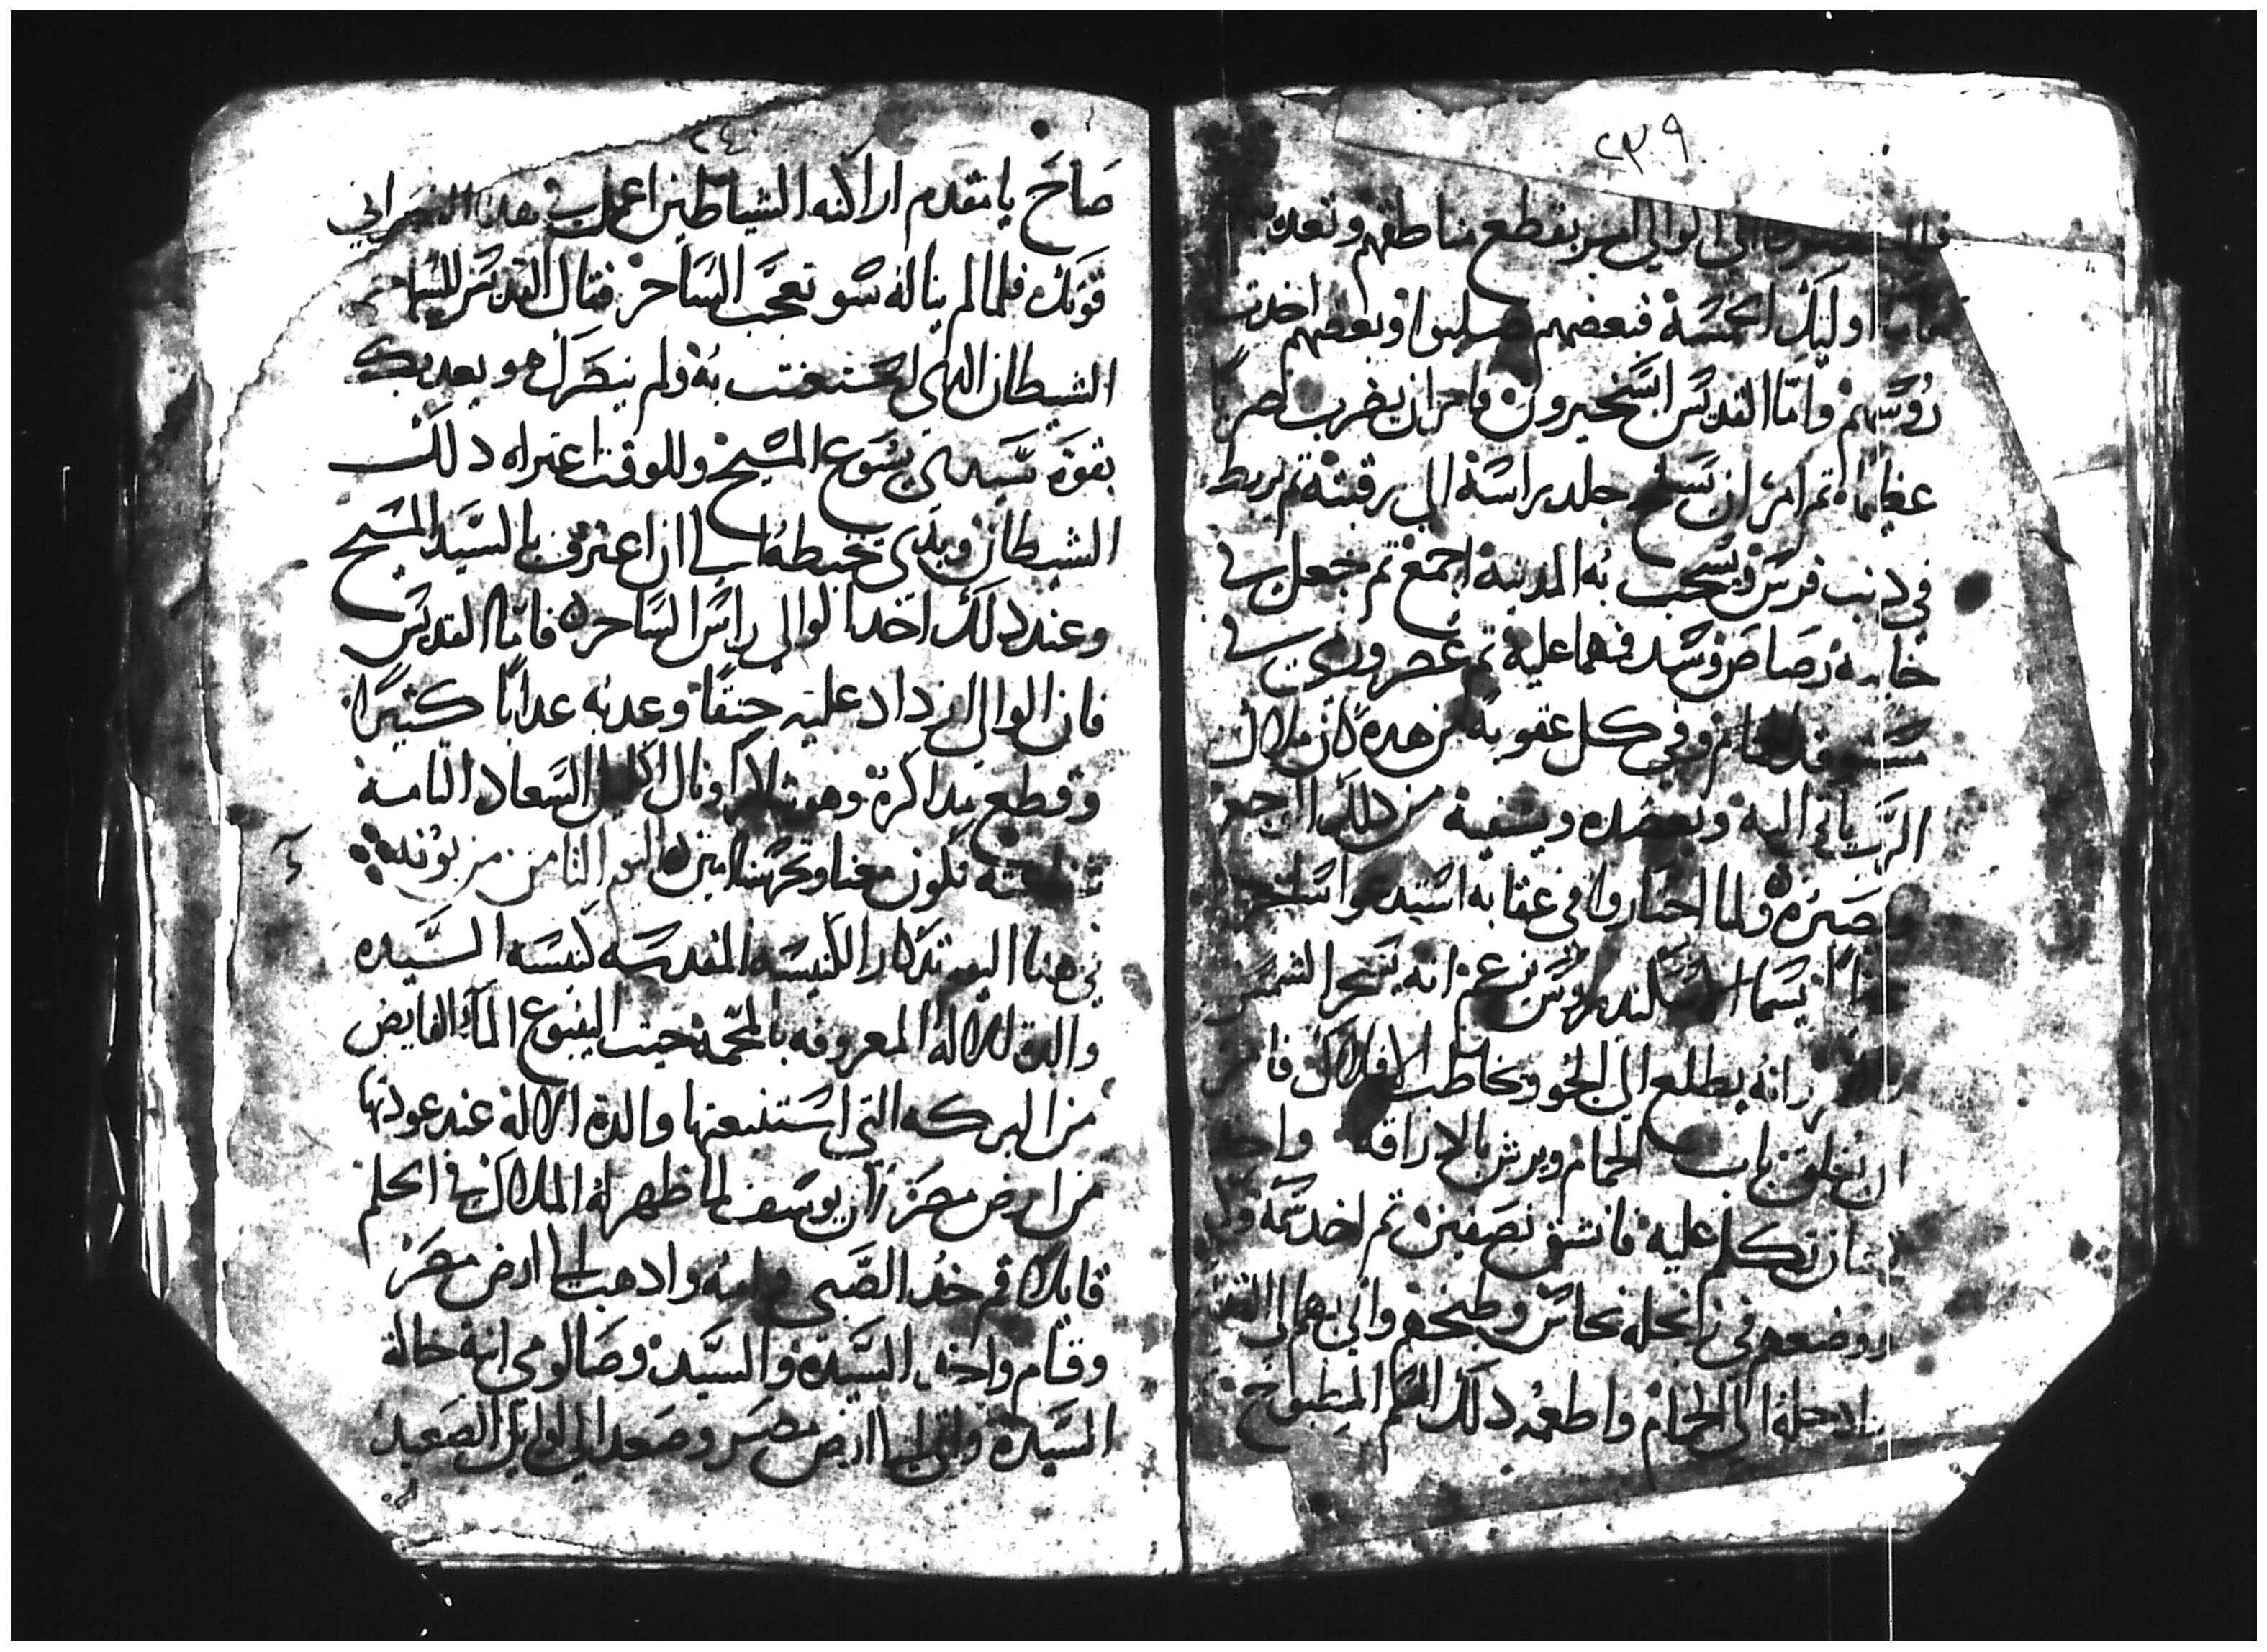 ٢٣٩
الوالي امر بقطع مناطقهم وبعده
اوليك الخمسة فبعضهم صلبوا وبعضهم اخدت
روسهم واما القديس ابسخيرون فامر ان يضرب ضربًا
عظيمًا ثم امر ان يسلخ جلد براسه الي رقبته ثم يربط
في دنب فرس ويسحب به المدينة اجمع ثم جعل في
خابية رصاص وشد فمها عليه ثم عصر ورمي في
مستوقد الحمام وفي كل عقوبة من هده كان ملاك
الرب ياتي اليه ويعضده ويشفيه من دلك الوجع
وصبره ولما احتاروا في عقابه استدعوا ساحر
يسما السكندروس يزعم انه يسحر الشمس
وانه يطلع الي الجو ويخاطب الافلاك فامر
ان يغلق باب الحمام ويرش بالاراقه واخد
تعبان تكلم عليه فانشق نصفين ثم اخد سمه
ووضعهم في زانجله نحاس وطبخهم واتي بهم الي القديس
وادخله الي الحمام واطعمه دلك السم المطبوخ
٢٤٠
صاح يا متقدم اراكنه الشياطين اعمل في هدا النصراني
قوتك فلما لم يناله سو تعجب الساحر فقال القديس للساحر
الشيطان الدي استعنت به ولم يتضرل هو يعدبك
بقوة سيدي يسوع المسيح وللوقت اعتراه دلك
الشيطان وبدي تخبطه الي ان اعترف بالسيد المسيح
وعند دلك اخد الوالي راس الساحر فاما القديس
فان الوالي ازداد عليه حنقًا وعدبه عدابًا كتيرًا
وقطع بداكرة وهو تلا ونال اكليل السعادة التامة
شفاعته تكون معنا وتحرسنا امين اليوم التامن من بونه
في هدا اليوم تدكار الكنيسه المقدسه كنيسه السيده
والدة الالاه المعروفه بالمحمه حيت الينبوع الماء الفايض
من البركه التي استنبعتها والدة الالاه عند عودتها
من ارض مصر لان يوسف لما ظهر له الملاك في الحلم
قايلًا قم خد الصبي وامه وادهب الي ارض مصر
وقام واخد السيدة والسيد وصالومي ابنة خالة
السيدة واتي الي ارض مصر وصعد الي اوايل الصعيد